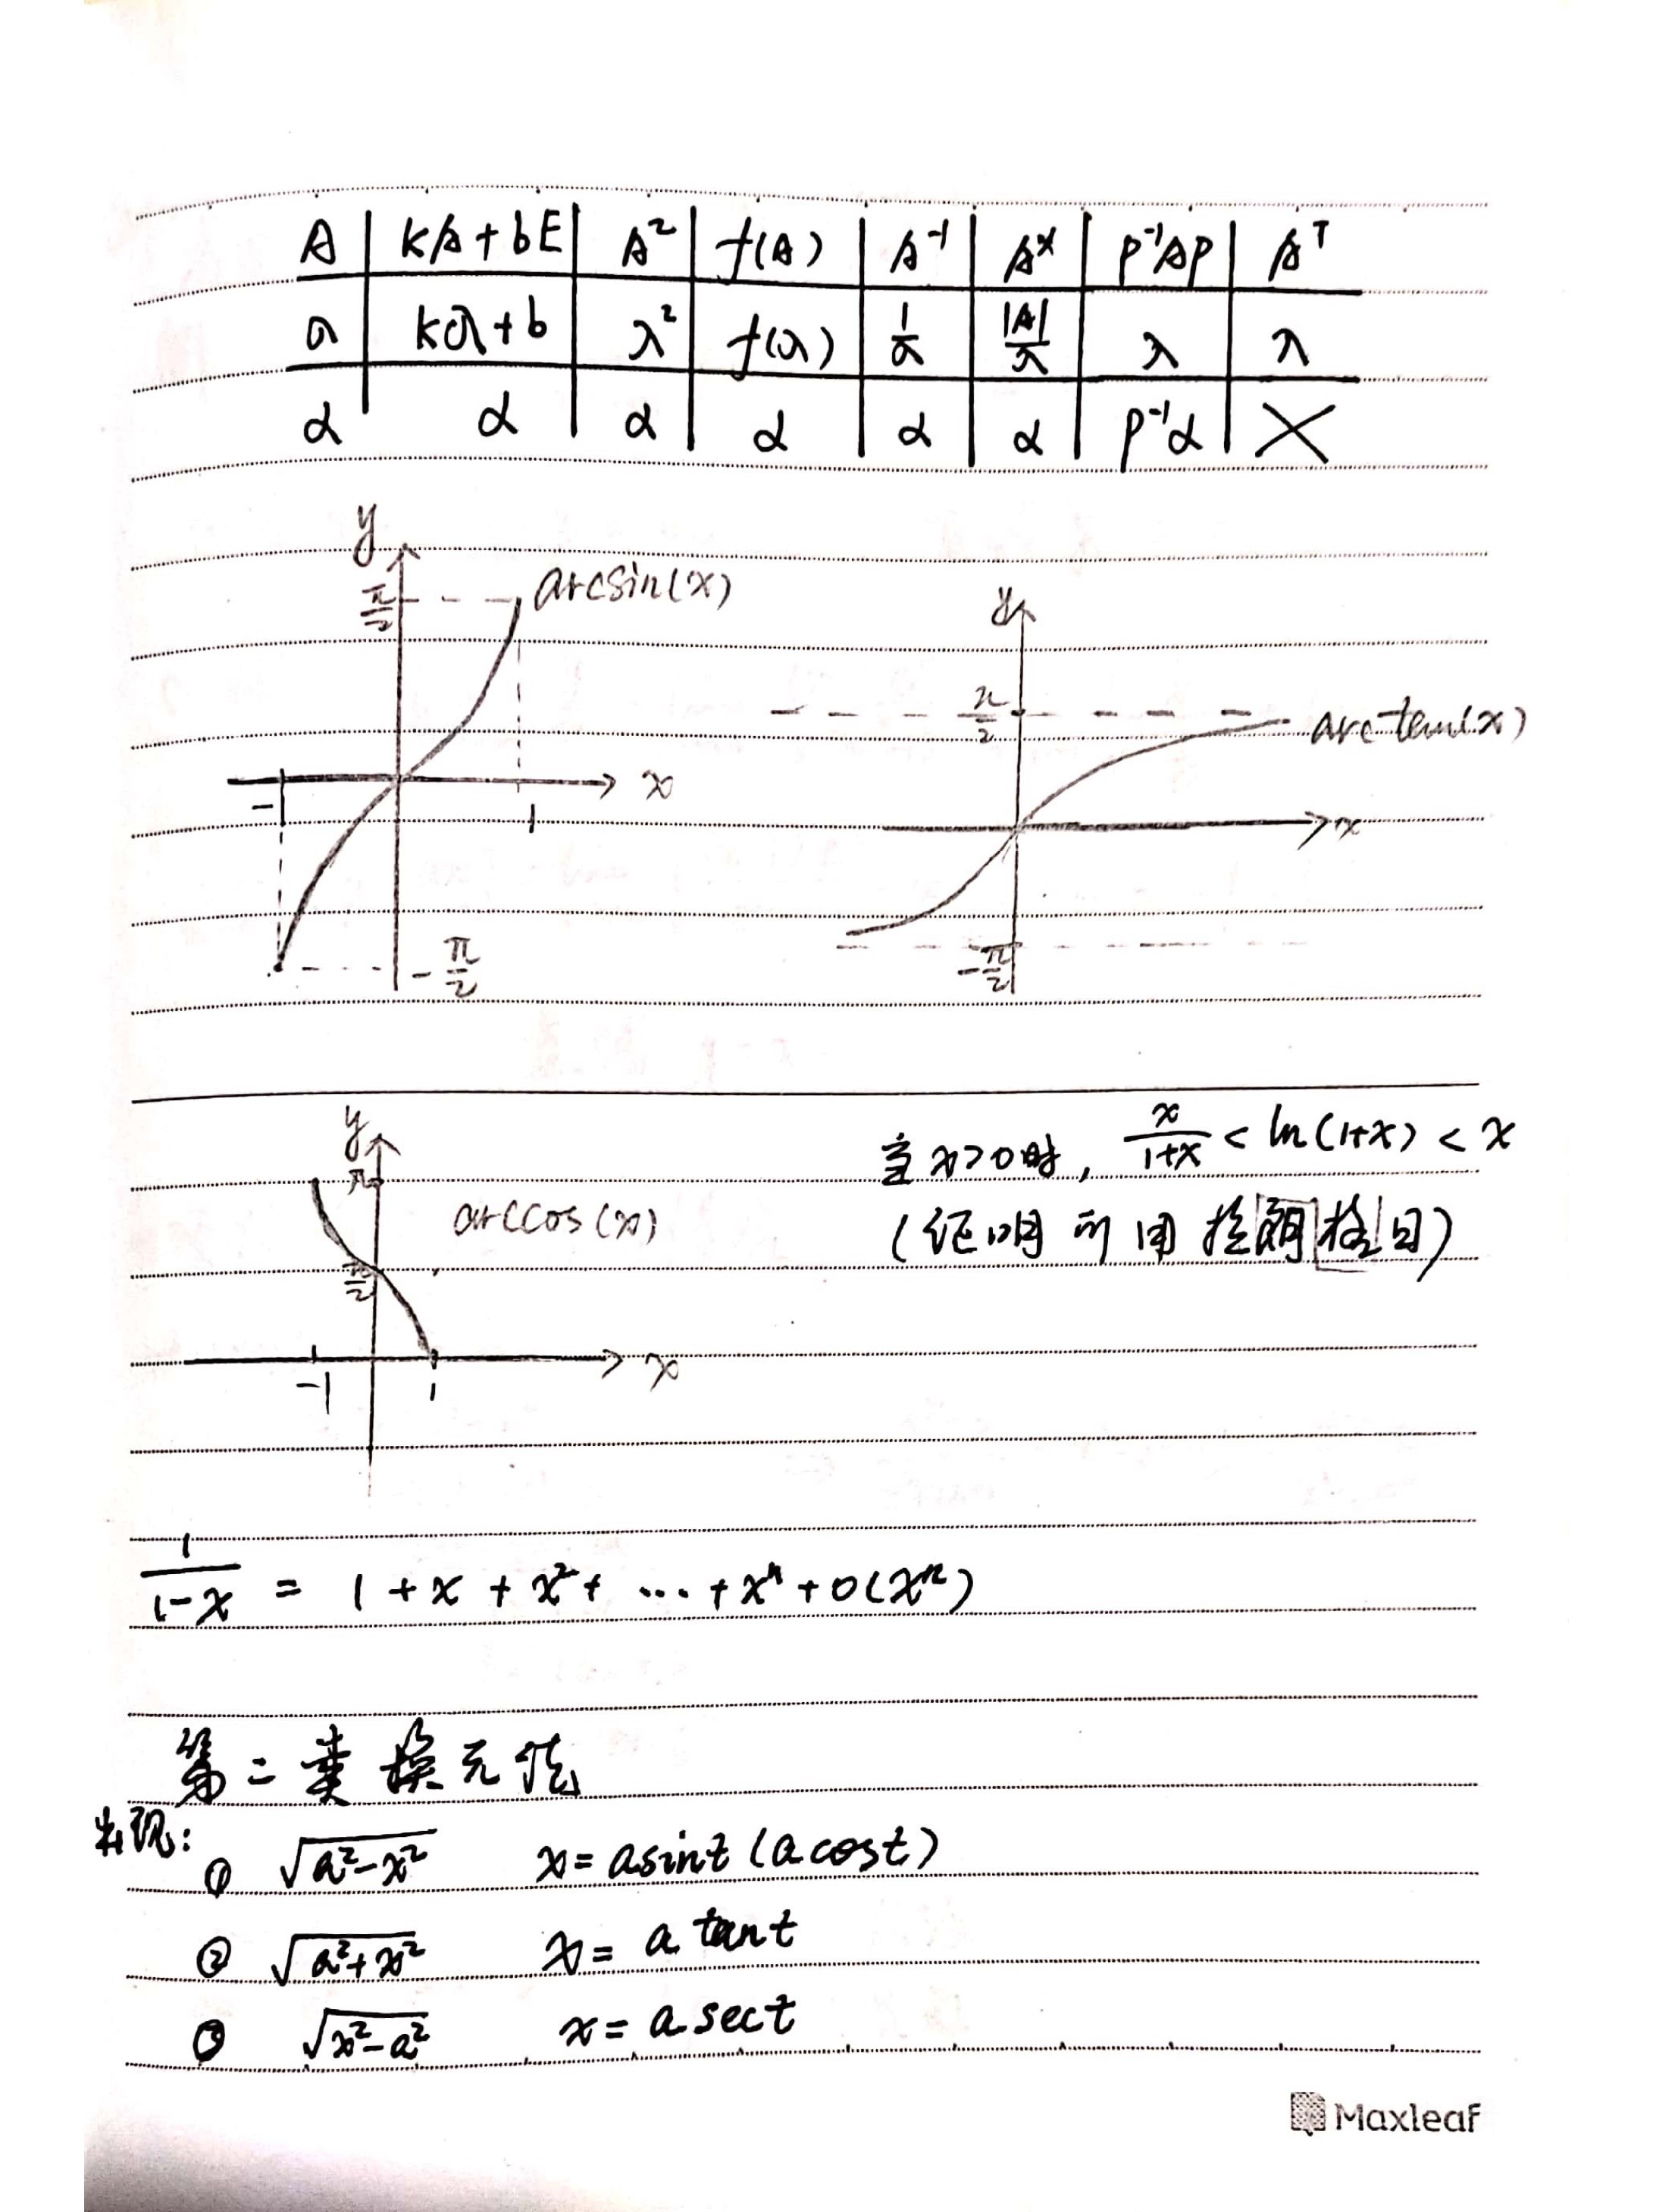 A | kA+bE | A² | f(A) | A⁻¹ | A* | P⁻¹AP | Aᵀ
λ | kλ+b | λ² | f(λ) | 1/λ | |A|/λ | λ | λ
α | α | α | α | α | α | P⁻¹α | ×
y
π/2 arcsin(x)
x
-1 1
-π/2
y
π/2 arctan(x)
x
-π/2
y
π
arccos(x)
π/2
x
-1 1
当x>0时, x/(1+x) < ln(1+x) < x
(证明可用拉朗格日)
1/(1-x) = 1+x+x²+ … +xⁿ+o(xⁿ)
第二类换元法
出现:
① √(a²-x²) x=asint(acost)
② √(a²+x²) x=a tant
③ √(x²-a²) x=a sect
Maxleaf